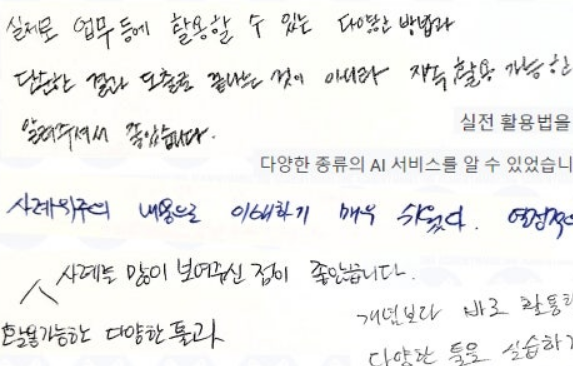 실제로 업무 등에 활용할 수 있는 다양한 방법과
단순한 결과 도출로 끝나는 것이 아니라 계속 활용 가능한
알려주셔서 좋았습니다.
실전 활용법을
다양한 종류의 AI 서비스를 알 수 있었습니
사례위주의 내용으로 이해하기 매우 쉬웠다. 열정적
사례도 많이 보여주신 점이 좋았습니다.
활용가능한 다양한 툴과
개념보다 바로 활용
다양한 툴을 실습하